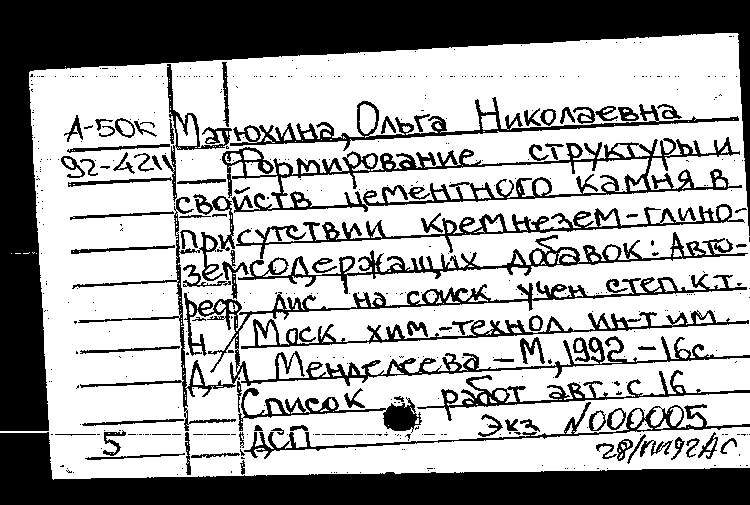 А-50К Матюхина, Ольга Николаевна.
92-4211 Формирование структуры и
свойств цементного камня в
присутствии кремнезем-глино-
земсодержащих добавок: Авто-
реф. дис. на соиск учен степ. к.т.
н. Моск. хим.-технол. ин-т им.
Д.И Менделеева - М., 1992. - 16с.
Список работ авт.: с. 16.
5 ДСП. Экз. N000005